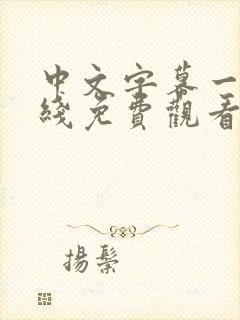 中文字幕一
綫免費觀看
揚鬃